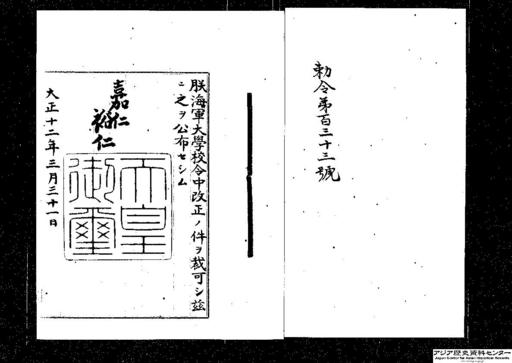 勅令第百三十三號
朕海軍大學校令中改正ノ件ヲ裁可シ茲
ニ之ヲ公布セシム
嘉仁
裕仁
天皇
御璽
大正十二年三月三十一日
アジア歴史資料センター
Japan Center for Asian Historical Records